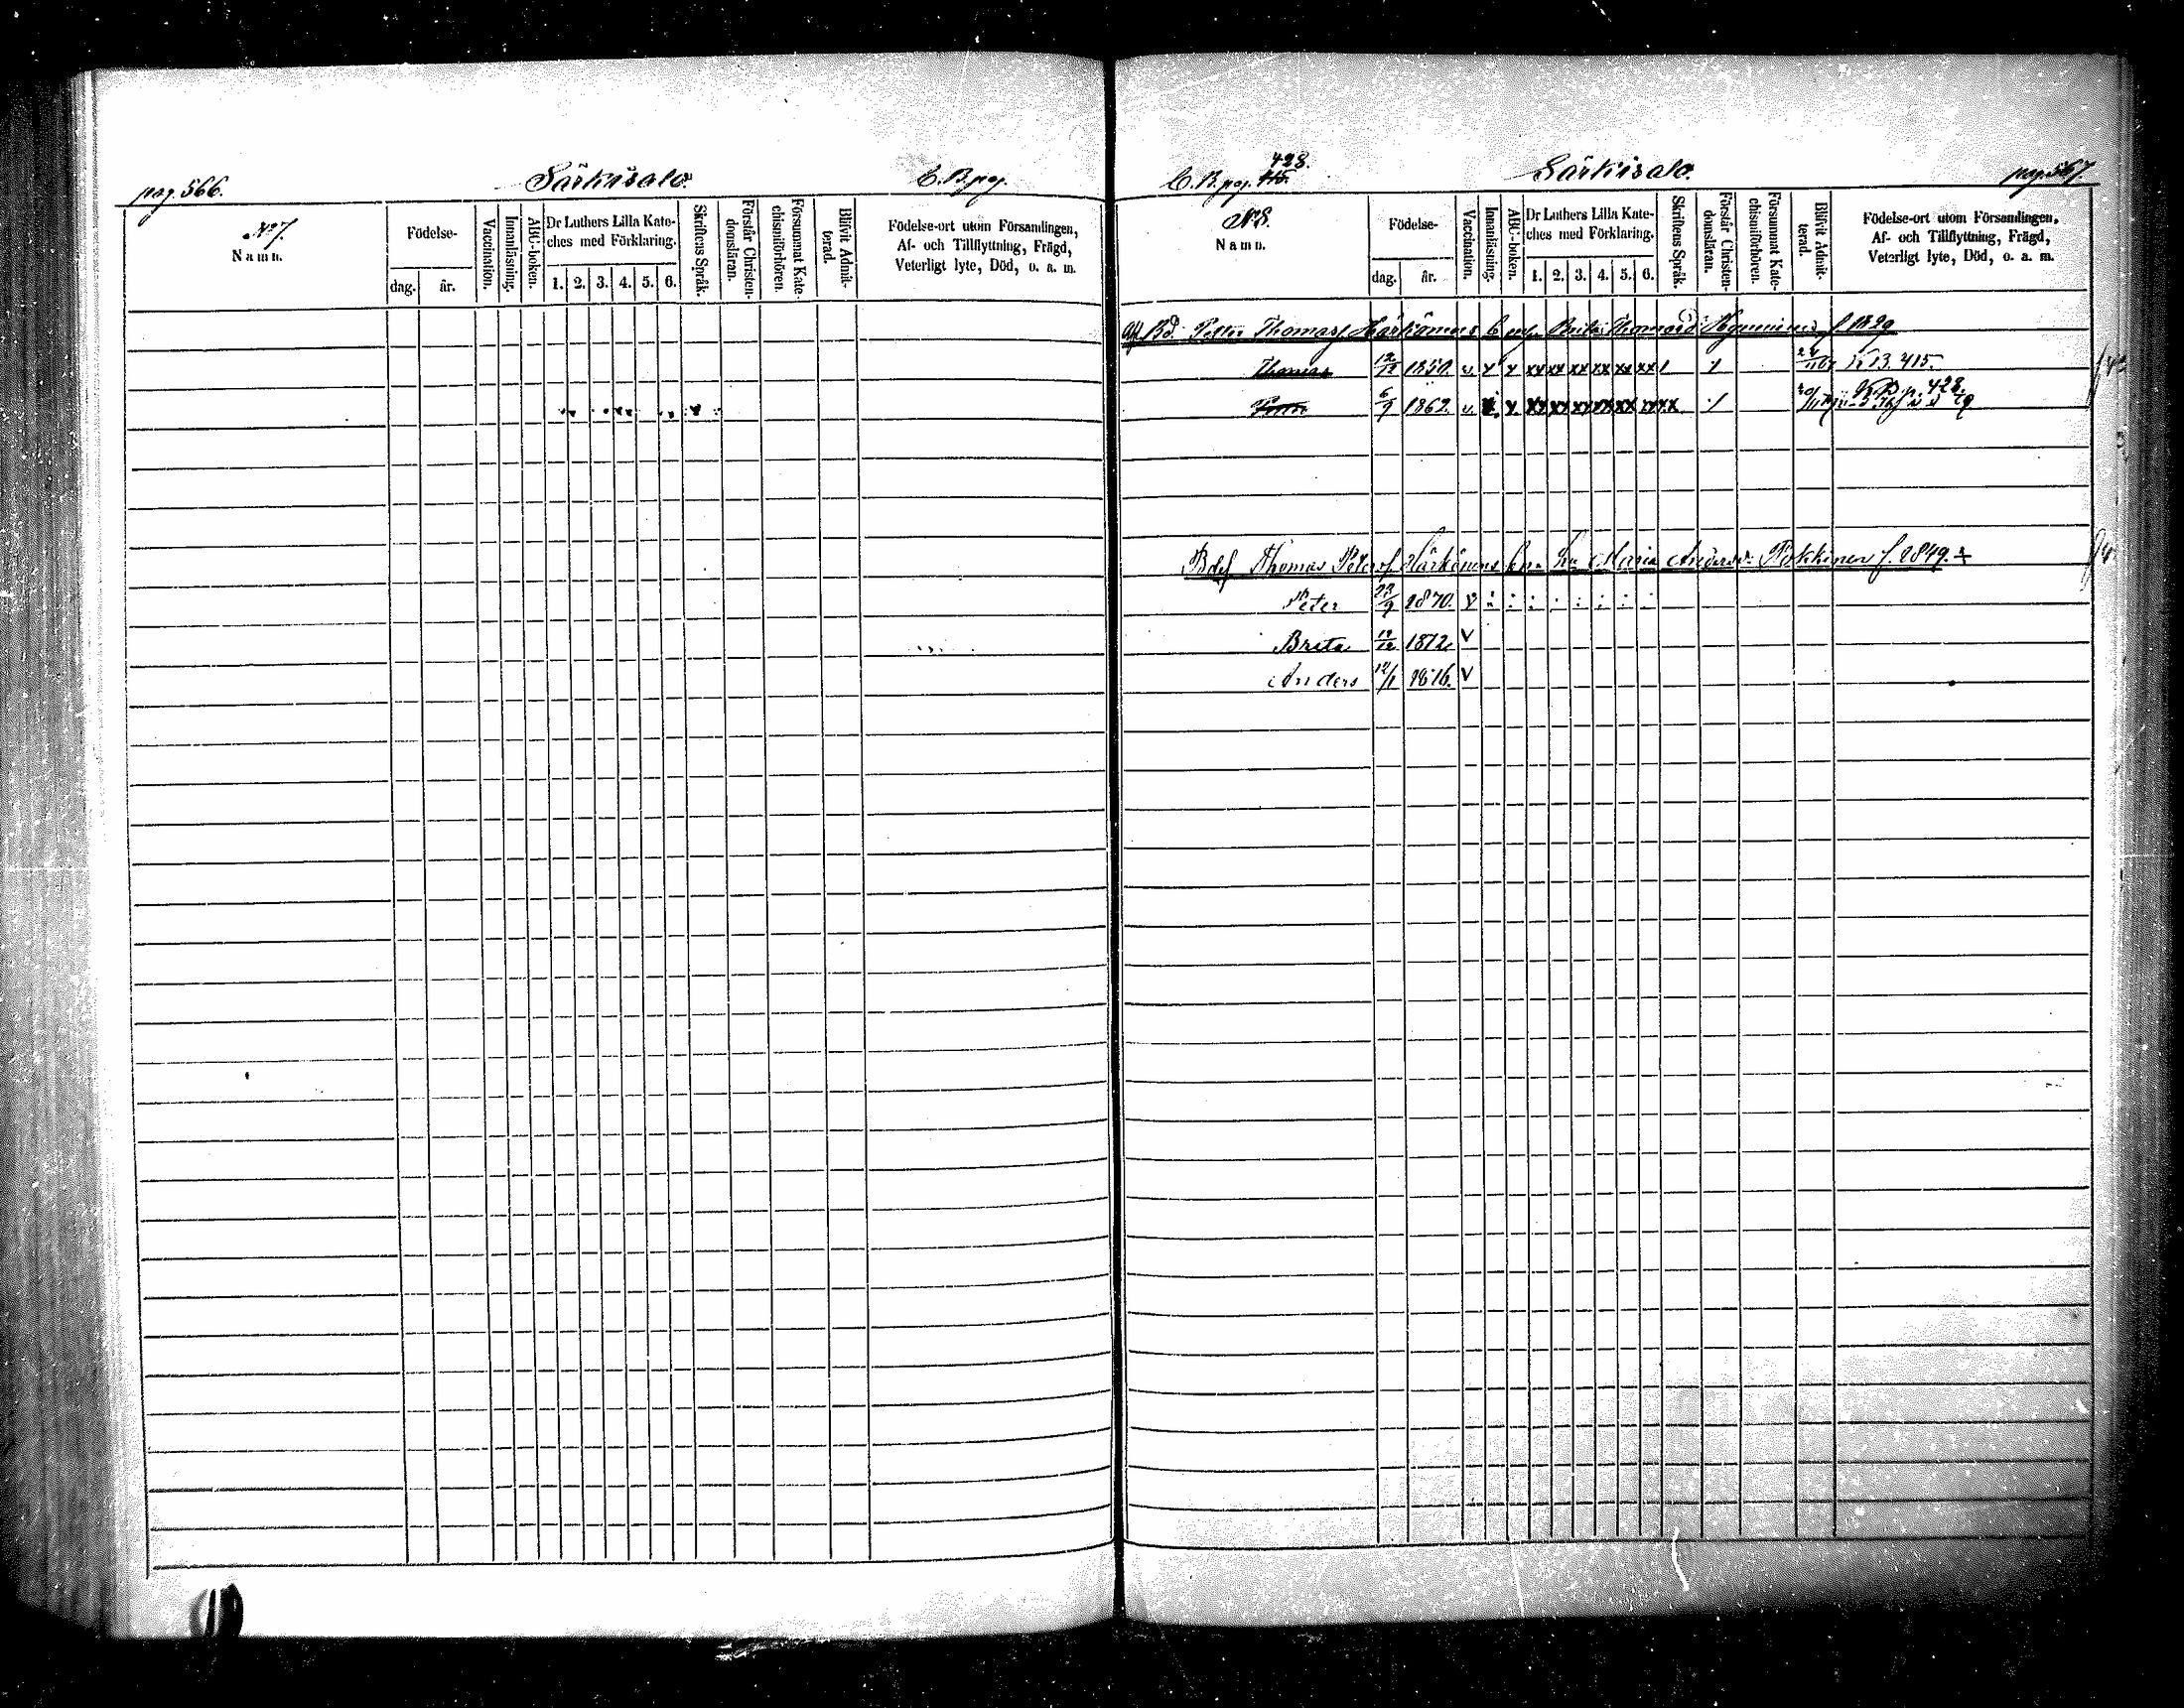 pag. 566.
Särkisalo.
C. B. pag.
N:o 7.
Namn.
Födelse-
dag.
år.
Vaccination.
Innanläsning.
ABC-boken.
Dr Luthers Lilla Kate-
ches med Förklaring.
1. 2. 3. 4. 5. 6.
Skriftens Språk.
Förstår Christen-
domsläran.
Försummat Kate-
chismiförhören.
Blifvit Admit-
terad.
Födelse-ort utom Församlingen,
Af- och Tillflyttning, Frägd,
Veterligt lyte, Död, o. a. m.
428.
C. B. pag. 415.
Särkisalo.
pag. 567
N:o 8.
Namn.
Födelse-
dag.
år.
Vaccination.
Innanläsning.
ABC-boken.
Dr Luthers Lilla Kate-
ches med Förklaring.
1. 2. 3. 4. 5. 6.
Skriftens Språk.
Förstår Christen-
domsläran.
Försummat Kate-
chismiförhören.
Blifvit Admit-
terad.
Födelse-ort utom Församlingen,
Af- och Tillflyttning, Frägd,
Veterligt lyte, Död, o. a. m.
Bd. Petter Thomass. Härkönens Brita Thomasd. f 1829
Thomas 12/12 1850. v x x xx xx xx xx xx xx 1 415.
Petter 6/9 1862. v x xx xx xx xx xx xx xx 428.
Thomas Petersf. Härkönens Maria Andersd. f. 1849.
Peter 23/9 1870. v
Brita 1872 v
Anders 12/1 1876. v